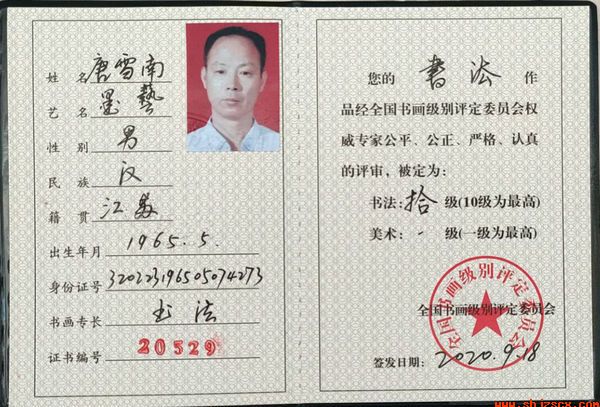 姓名 唐雪南
艺名 墨藝
性别 男
民族 汉
籍贯 江苏
出生年月 1965.5.
身份证号 320223196505074273
书画专长 书法
证书编号 20529
您的 書法 作
品经全国书画级别评定委员会权
威专家公平、公正、严格、认真
的评审，被定为：
书法：拾 级(10级为最高)
美术： 级(一级为最高)
全国书画级别评定委员会
全国书画级别评定委员会
签发日期：2020.9.18
www.shjzscx.com